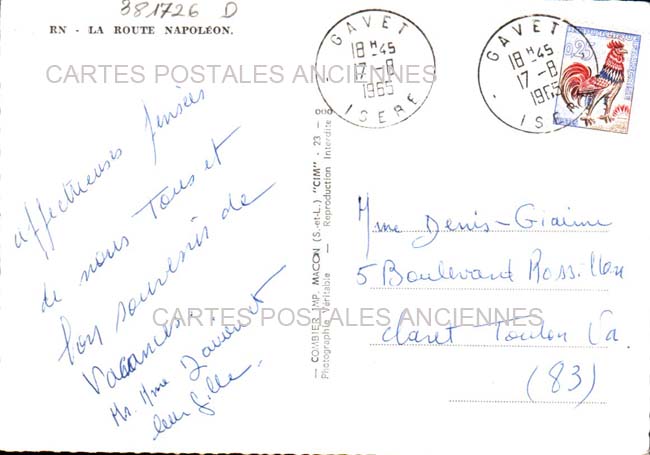 381726 D
RN - LA ROUTE NAPOLÉON.
GAVET
18 H 45
17-8
1965
ISERE
GAVET
18 H 45
17-8
1965
ISERE
0,25
CARTES POSTALES ANCIENNES
affectueuses pensées
de nous Tous et
bon souvenirs de
Vacances.
Mr. Mme et
leur fille.
— COMBIER IMP. MACON (S.-et-L.) "CIM" - 23 -
Photographie Véritable - Reproduction Interdite
Mme Denis-Giaime
5 Boulevard Rossillon
Claret Toulon Va.
(83)
CARTES POSTALES ANCIENNES